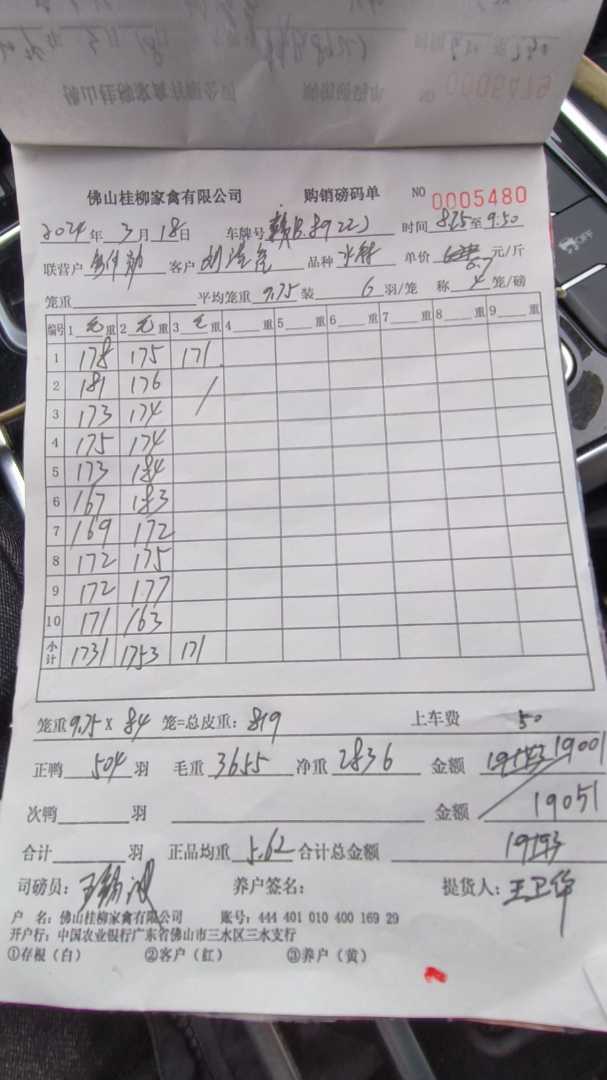 佛山桂柳家禽有限公司 购销磅码单 NO 0005480
2024年3月18日 车牌号 赣B.8922J 时间 8.25至9.50
联营户 客户 品种 水鸭 单价 6.7 元/斤
笼重 平均笼重 9.75 装 6 羽/笼 称 4 笼/磅
编号 1 毛 重 2 毛 重 3 毛 重 4 重 5 重 6 重 7 重 8 重 9 重
1 178 175 171
2 181 176 /
3 173 174
4 175 174
5 173 184
6 167 183
7 169 172
8 172 175
9 172 177
10 171 163
小计 1731 1753 171
笼重 9.75 X 84 笼=总皮重: 819 上车费 50
正鸭 504 羽 毛重 3655 净重 2836 金额 19001
次鸭 羽 金额 19051
合计 羽 正品均重 5.62 合计总金额 19193
司磅员: 养户签名: 提货人: 王卫华
户 名: 佛山桂柳家禽有限公司 账号: 444 401 010 400 169 29
开户行: 中国农业银行广东省佛山市三水区三水支行
①存根(白) ②客户(红) ③养户(黄)